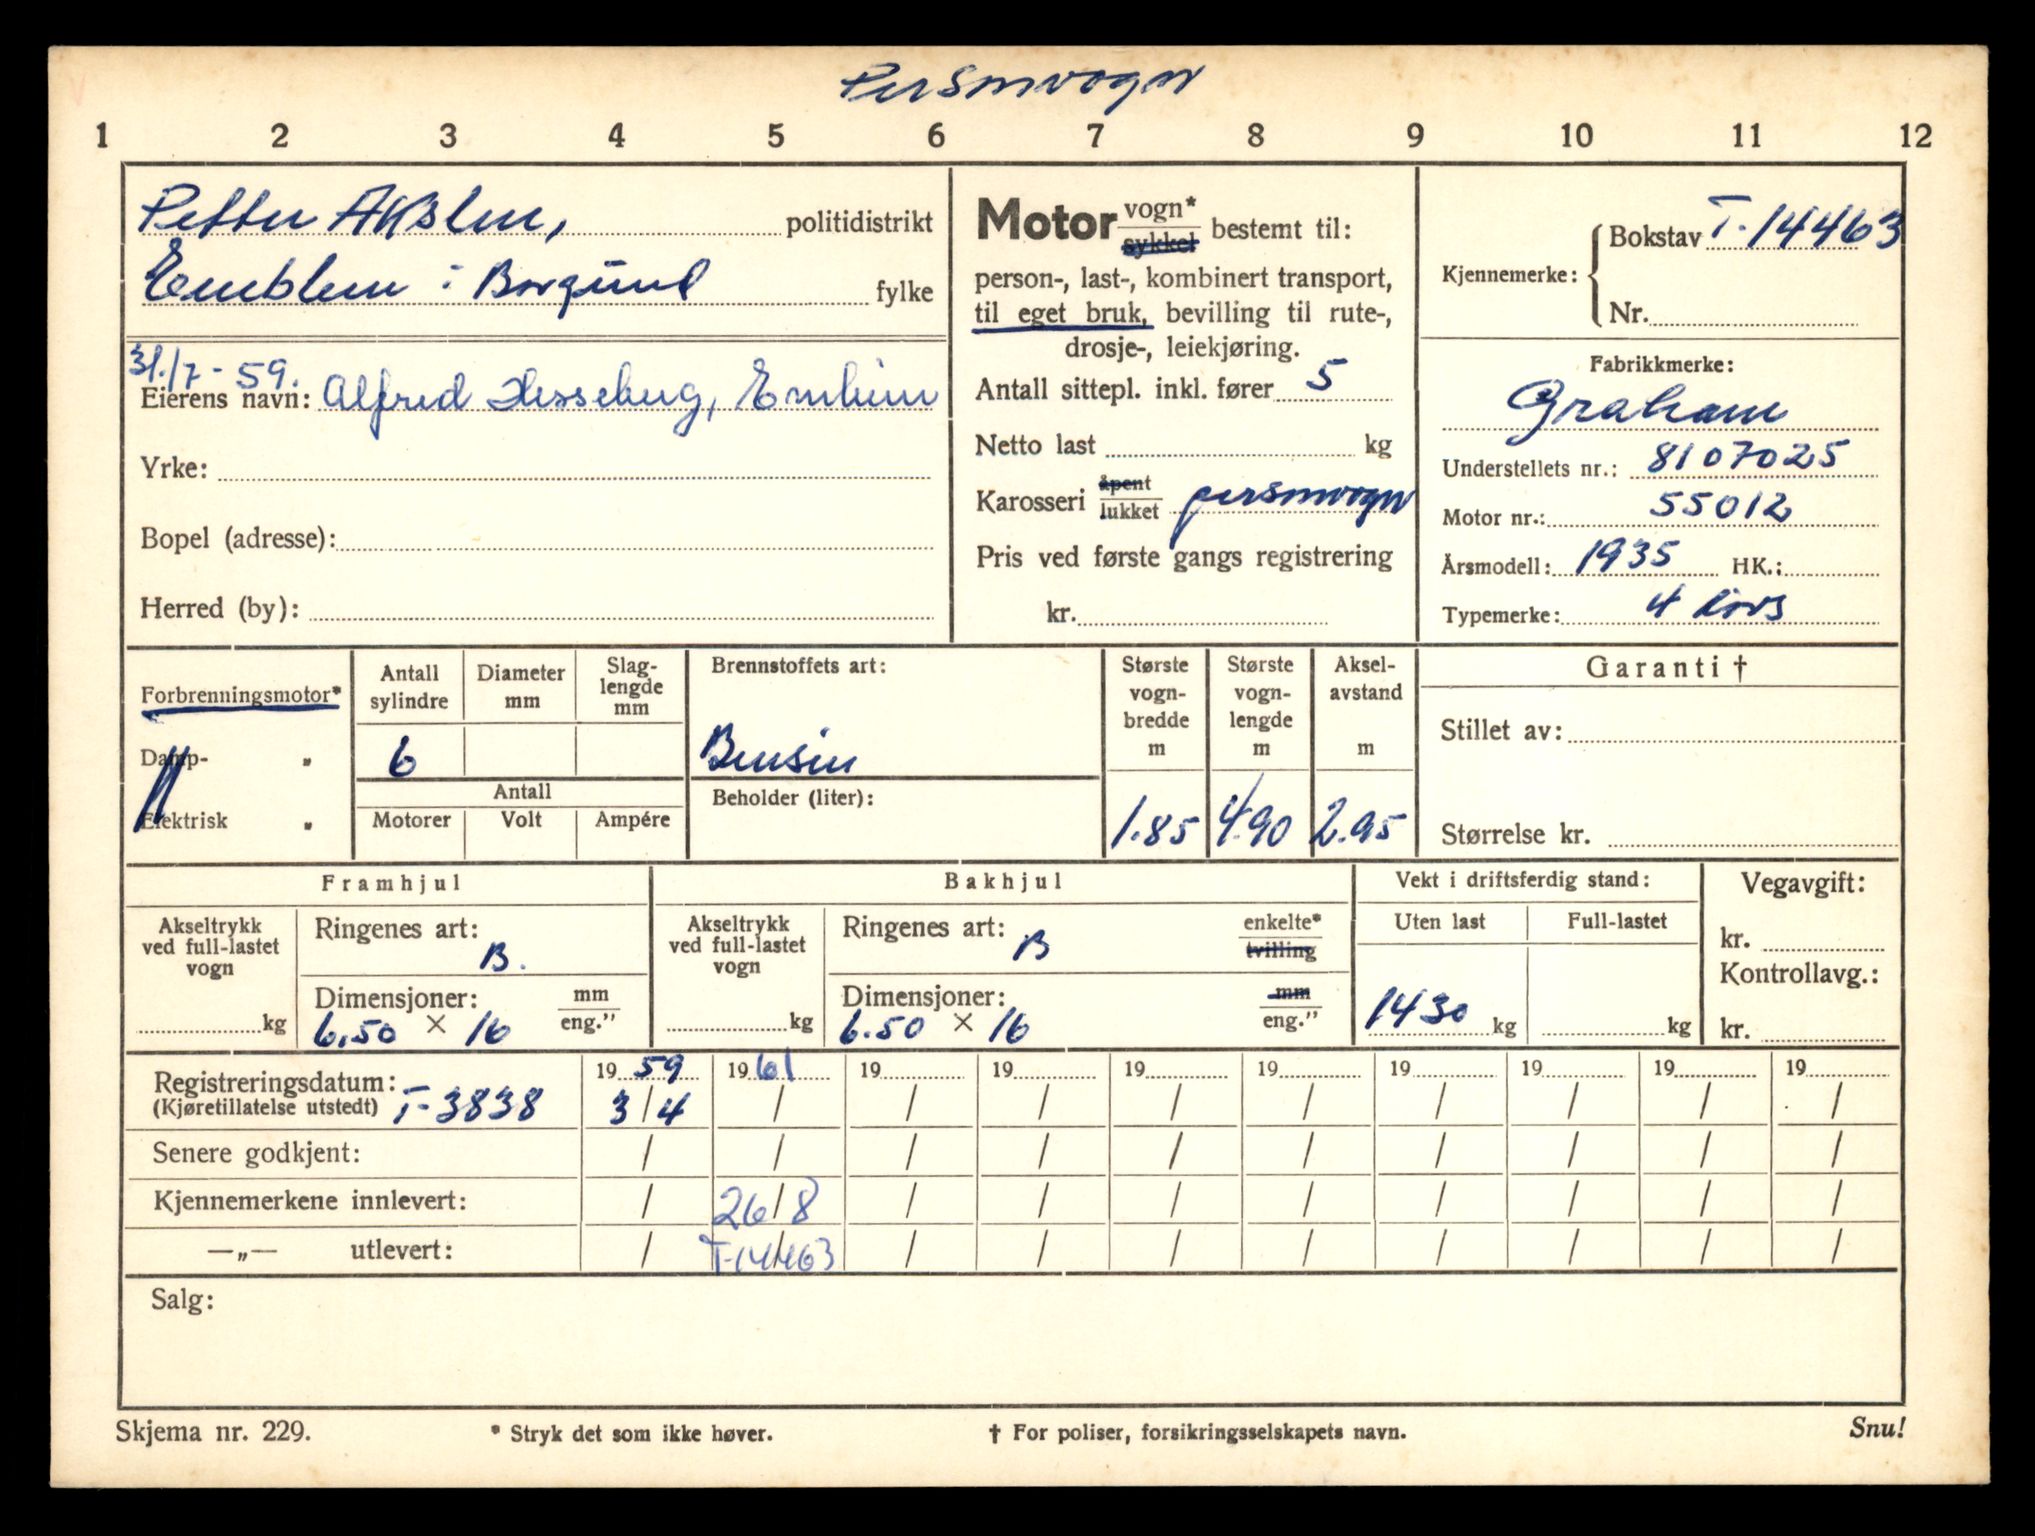 Personvogn
1 2 3 4 5 6 7 8 9 10 11 12
Petter Akslen, politidistrikt
Emblem i Borgund fylke
31./7-59.
Eierens navn: Alfred Hesseberg, Emblem
Yrke:
Bopel (adresse):
Herred (by):
Motor vogn* sykkel bestemt til:
person-, last-, kombinert transport,
til eget bruk, bevilling til rute-,
drosje-, leiekjøring.
Antall sittepl. inkl. fører 5
Netto last kg
Karosseri åpent lukket personvogn
Pris ved første gangs registrering
kr.
Kjennemerke: Bokstav T-14463
Nr.
Fabrikkmerke:
Graham
Understellets nr.: 8107025
Motor nr.: 55012
Årsmodell: 1935 HK.:
Typemerke: 4 dørs
Forbrenningsmotor*
Damp- „
Elektrisk „
Antall sylindre
Diameter mm
Slag-
lengde
mm
6
Antall
Motorer Volt Ampére
Brennstoffets art:
Bensin
Beholder (liter):
Største
vogn-
bredde
m
1.85
Største
vogn-
lengde
m
4.90
Aksel-
avstand
m
2.95
Garanti †
Stillet av:
Størrelse kr.
Framhjul
Akseltrykk
ved full-lastet
vogn
kg
Ringenes art:
B.
Dimensjoner: mm
6.50 × 16 eng.”
Bakhjul
Akseltrykk
ved full-lastet
vogn
kg
Ringenes art: enkelte*
B tvilling
Dimensjoner: mm
6.50 × 16 eng.”
Vekt i driftsferdig stand:
Uten last Full-lastet
1430 kg kg
Vegavgift:
kr.
Kontrollavg.:
kr.
Registreringsdatum: 19 59 19 61 19 19 19 19 19 19 19 19
(Kjøretillatelse utstedt) T-3838 3/4 / / / / / / / / /
Senere godkjent: / / / / / / / / / /
Kjennemerkene innlevert: / 26/8 / / / / / / / /
—„— utlevert: / T-14463 / / / / / / / /
Salg:
Skjema nr. 229. * Stryk det som ikke høver. † For poliser, forsikringsselskapets navn. Snu!